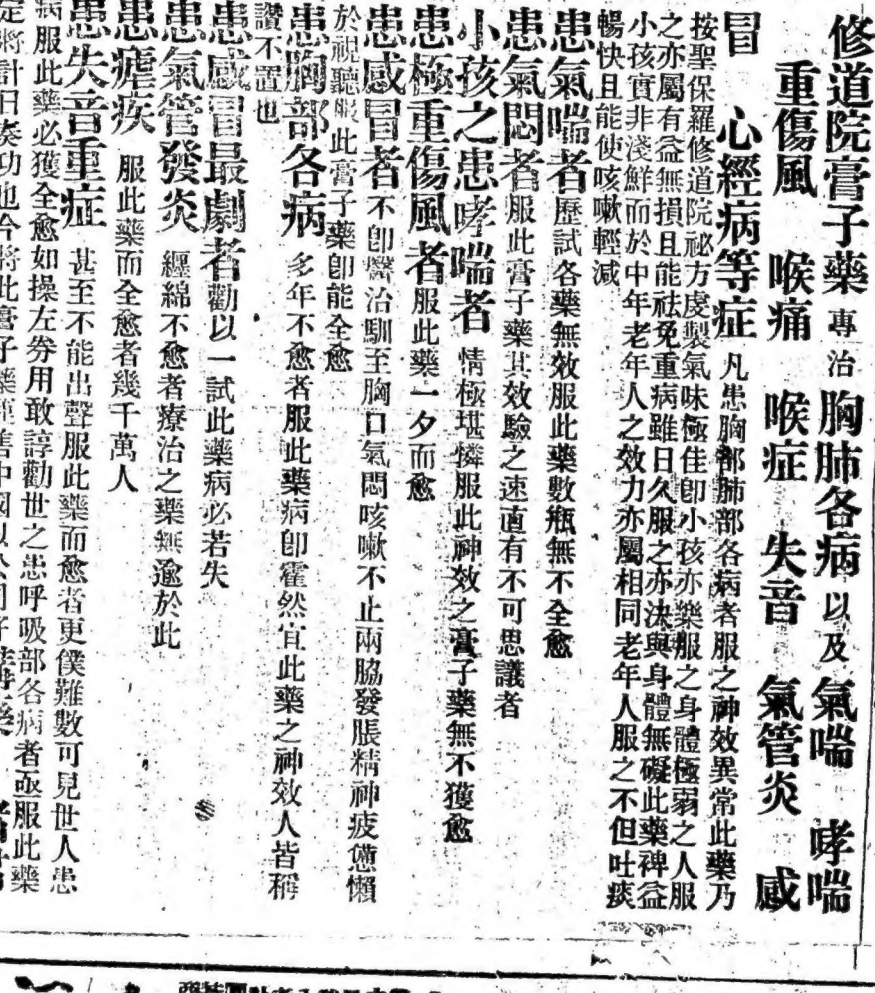 修道院膏子藥 專治 胸肺各病 以及 氣喘 哮喘
重傷風 喉痛 喉症 失音 氣管炎 感
冒 心經病等症 凡患胸部肺部各病者服之神效異常此藥乃
按聖保羅修道院祕方虔製氣味極佳卽小孩亦樂服之身體極弱之人服
之亦屬有益無損且能祛免重病雖日久服之亦決與身體無礙此藥裨益
小孩實非淺鮮而於中年老年人之效力亦屬相同老年人服之不但吐痰
暢快且能使咳嗽輕减
患氣喘者歷試各藥無效服此藥數瓶無不全愈
患氣悶者服此膏子藥其效驗之速直有不可思議者
小孩之患哮喘者 情極堪憐服此神效之膏子藥無不獲愈
患極重傷風者服此藥一夕而愈
患感冒者不卽醫治馴至胸口氣悶咳嗽不止兩脇發脹精神疲憊懶
於視聽服此膏子藥卽能全愈
患胸部各病 多年不愈者服此藥病卽霍然宜此藥之神效人皆稱
讚不置也
患感冒最劇者勸以一試此藥病必若失
患氣管發炎 纏綿不愈者療治之藥無逾於此
患瘧疾 服此藥而全愈者幾千萬人
患失音重症 甚至不能出聲服此藥而愈者更僕難數可見世人患
病服此藥必獲全愈如操左券用敢諄勸世之患呼吸部各病者亟服此藥
定將計日奏功也今將此膏子藥